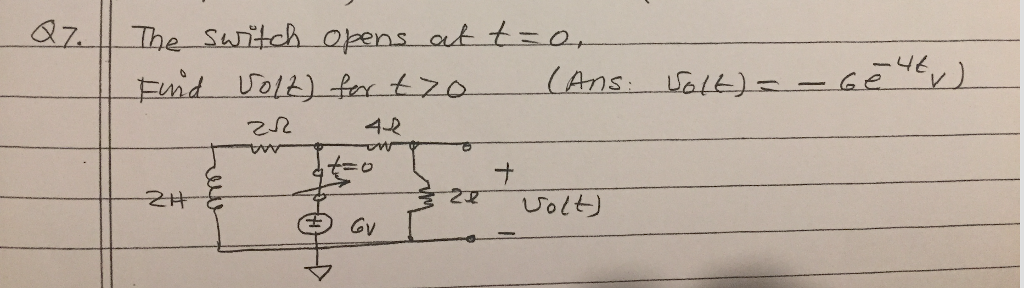 Q7. The switch opens at t=0,
Find Vo(t) for t>0 (Ans: Vo(t) = - 6e^-4t v)
2Ω 4Ω
t=0
+
2H 2Ω Vo(t)
± 6v
-